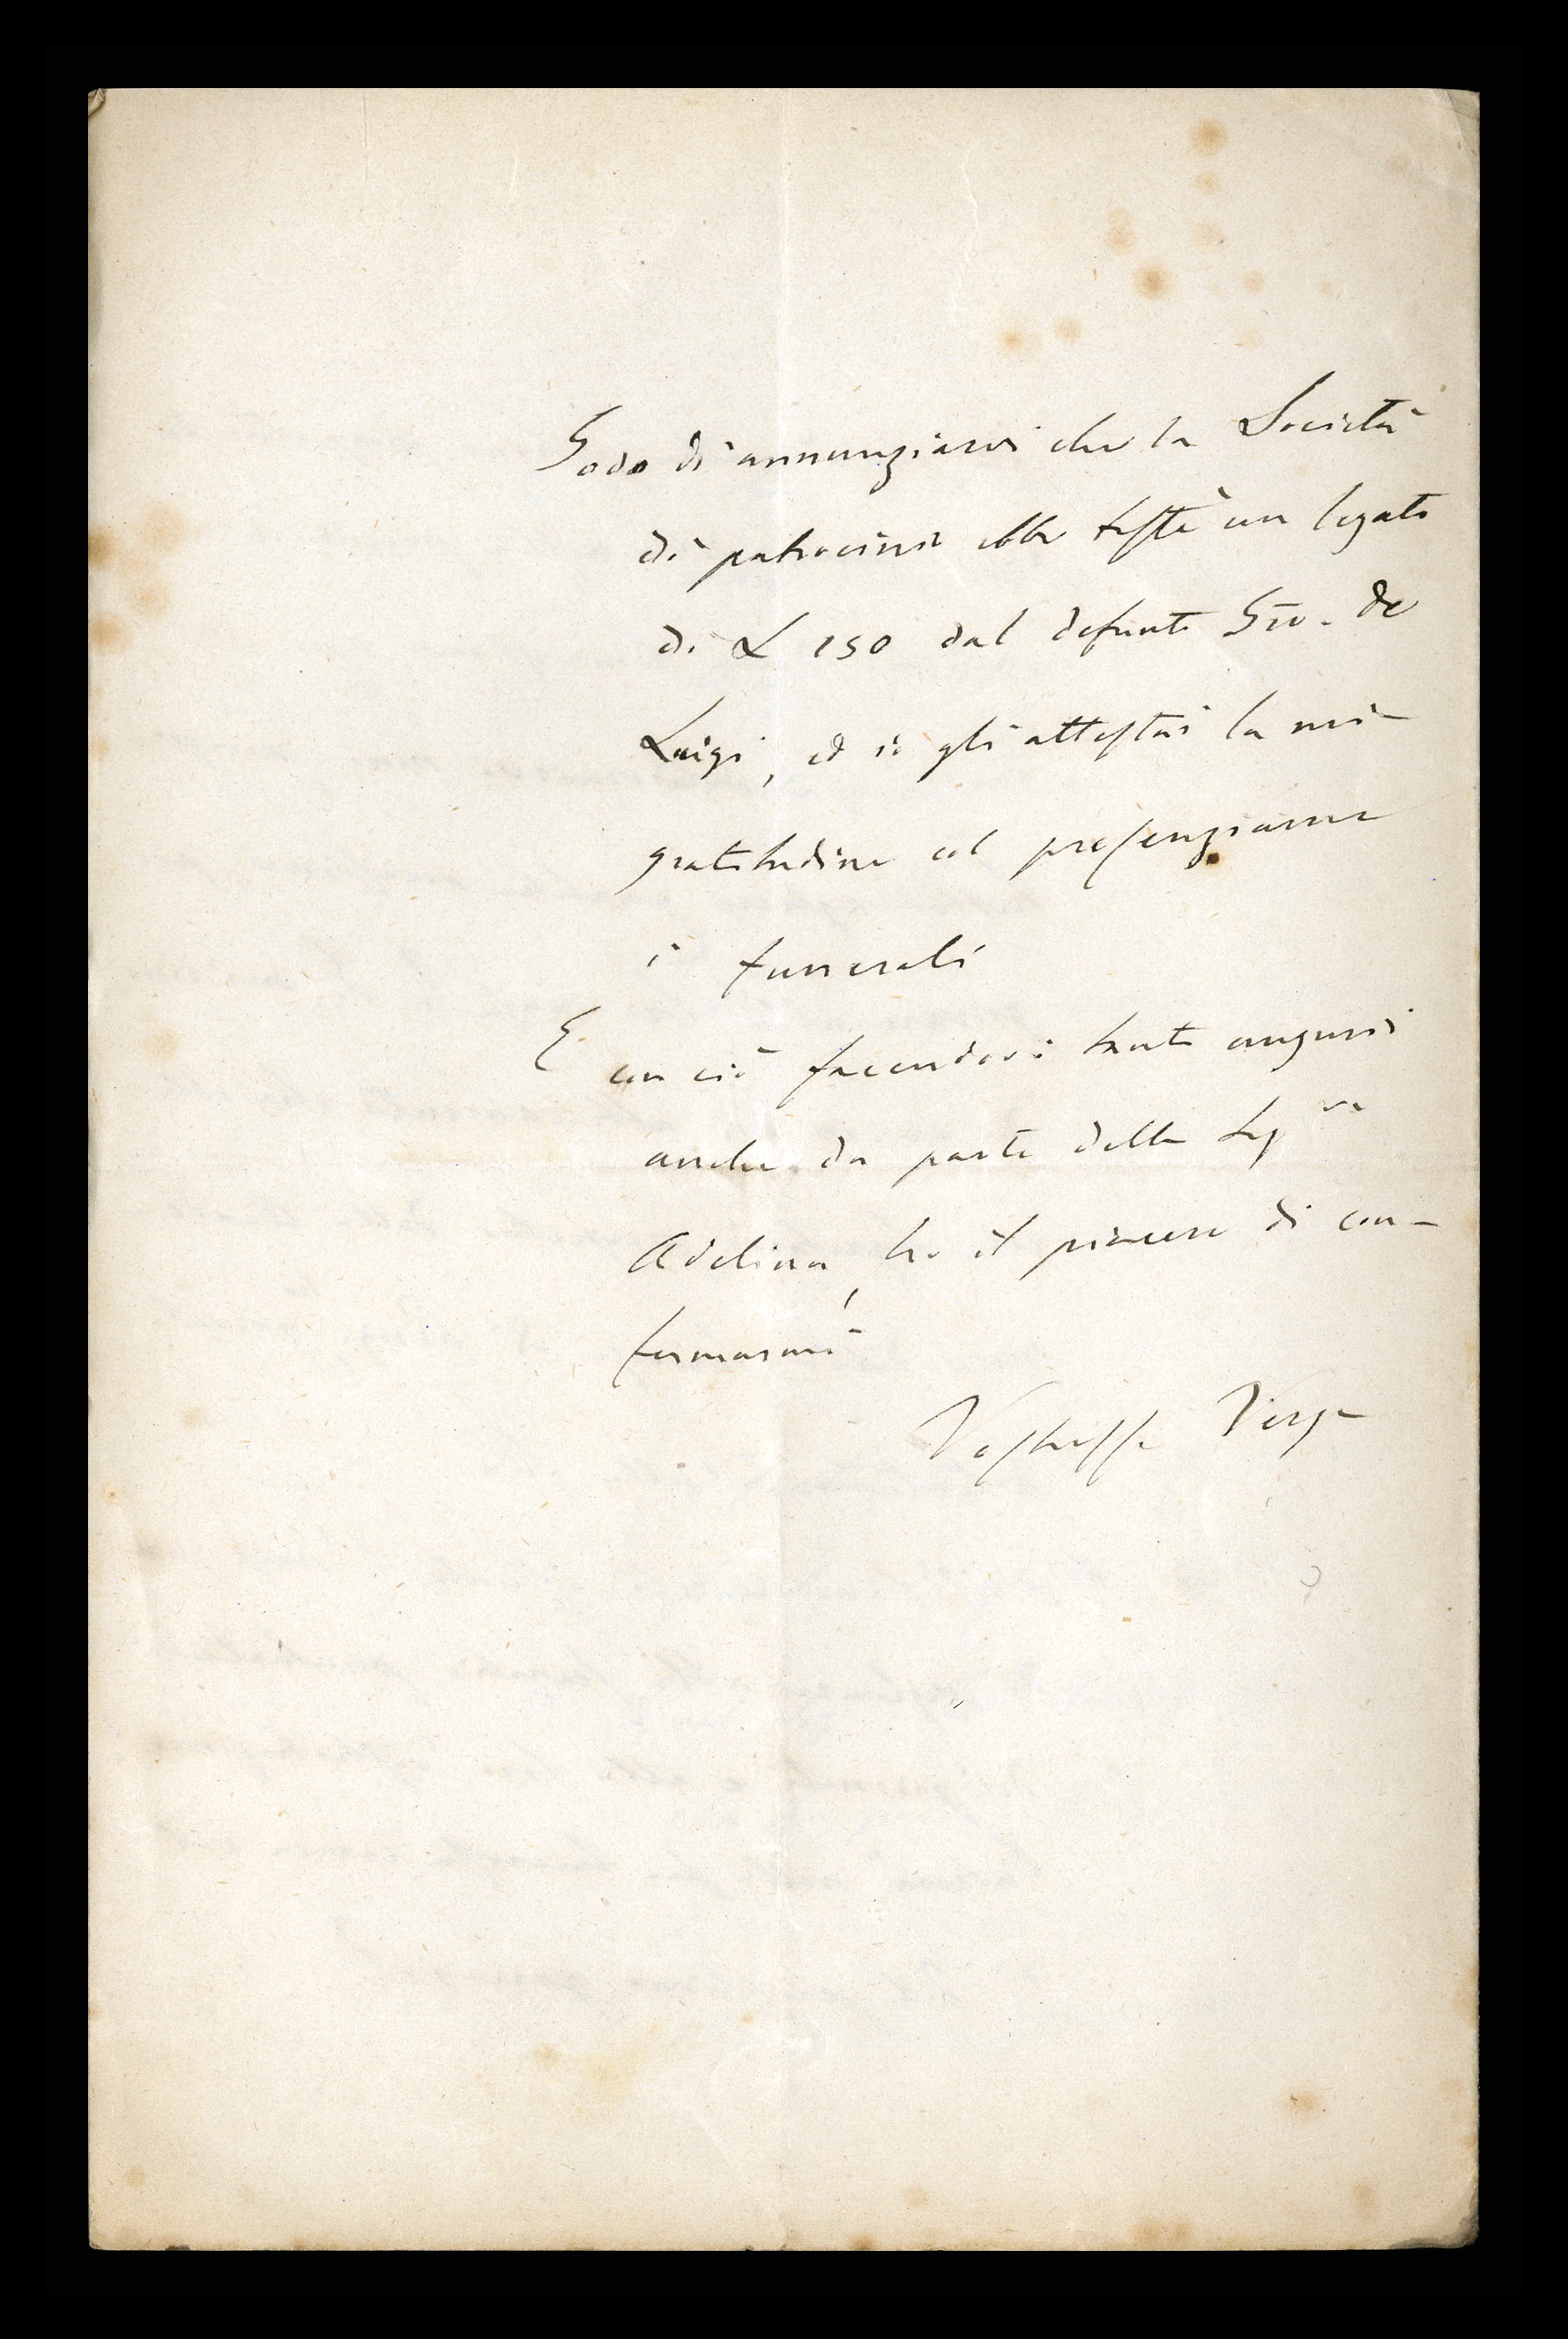 Godo di annunziarvi che la Società
di patrocinio ebbe testè un legato
di L 150 dal defunto Gio. de
Luigi, ed io gli attestai la mia
gratitudine col presenziarne
i funerali
E con ciò facendovi tanti auguri
anche da parte della Sig.ra
Adelina, ho il piacere di con-
fermarmi
Vostrissi Verga